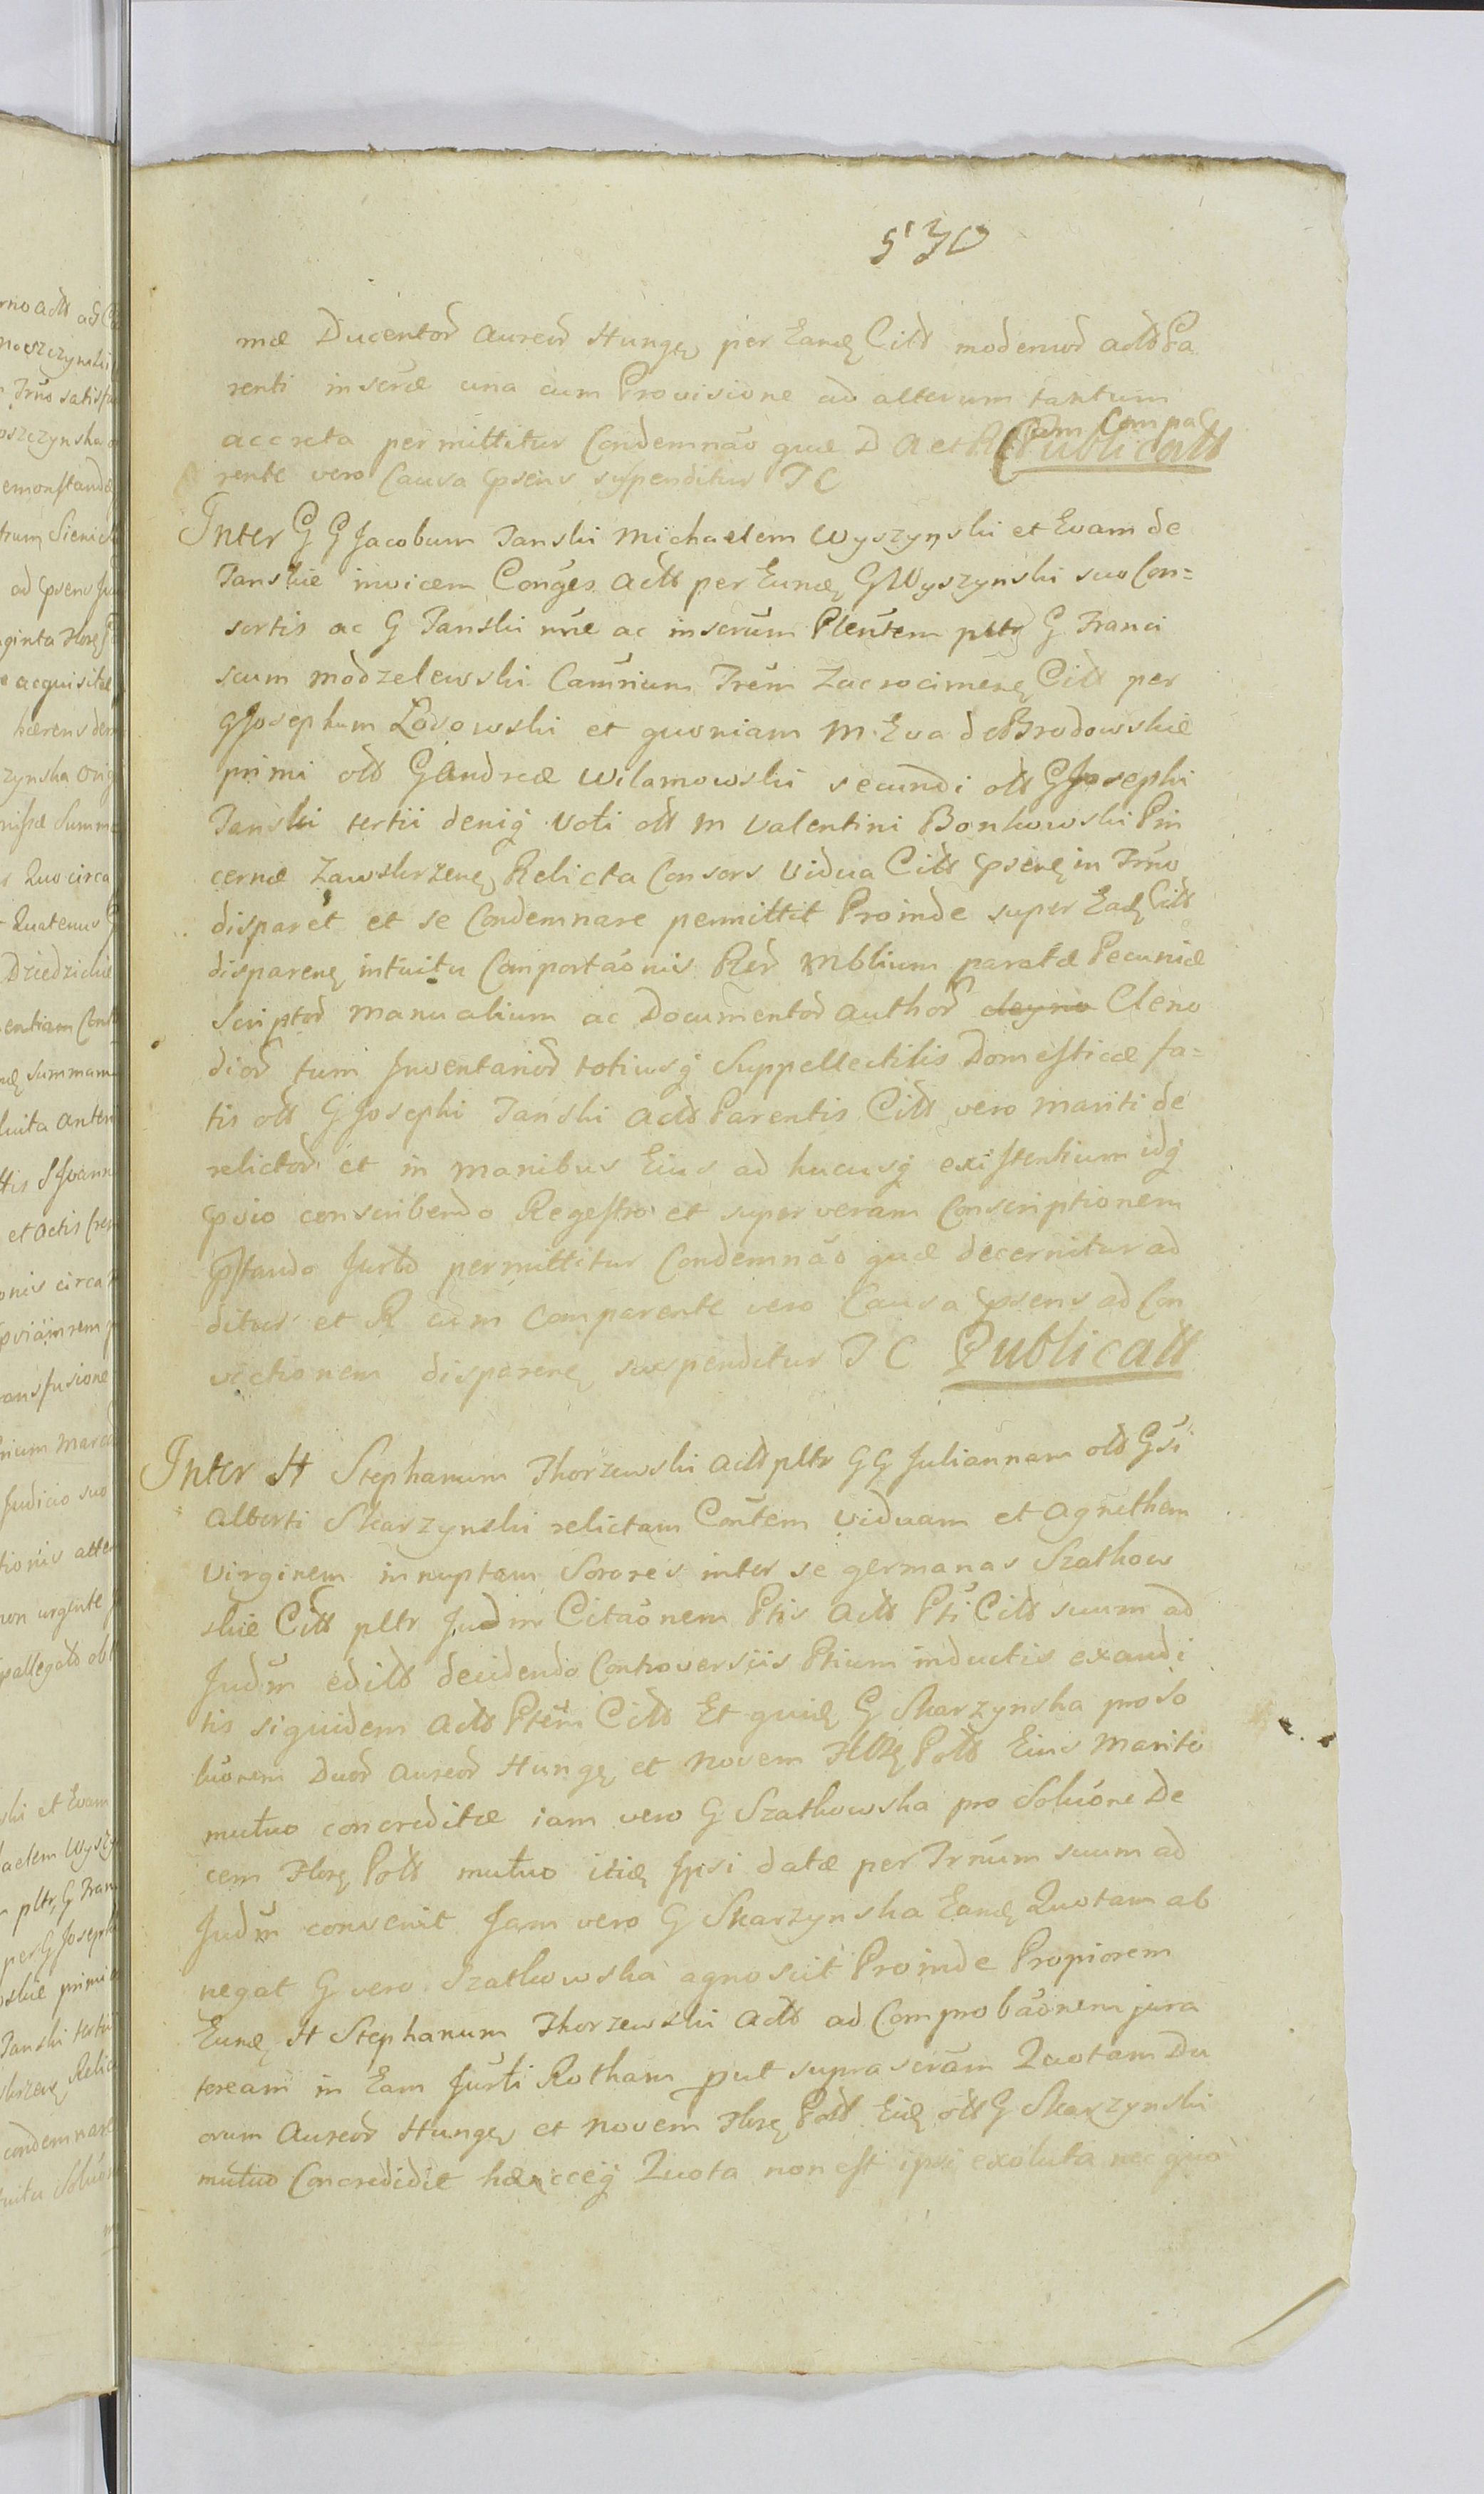 530
mæ Ducentor Aureor Hung per Eand Citt modernor Actt Pa
renti inscræ una cum Provisione ad alterum tantum
accreta permittitur Condemnão quæ D A et R Cum Compa
rente vero Causa psens suspenditur T C Publicatt
Inter G G Jacobum Tanski Michaelem Wyszynski et Evam de
Tanskie invicem Conges Actt per Eund G Wyszynski suo Con=
sortis ac G Tanski nne ac inscrum Plentem pltr G Franci
scum Modzelewski Camrium Trem Zacrocimen Citt per
G Josephum Losowski et quoniam M. Eva de Brodowskie
primi ott G Andreæ Wilamowski secundi ott G Josephi
Tanski tertii deniq voti ott M Valentini Bonkowski Pin
cernæ Zawskrzen Relicta Consors Vidua Citt psens in Trno
disparet et se Condemnare permittit Proinde super Ead Citt
disparen intuitu Comportaonis Rer Mblium paratæ Pecuniæ
Scriptor Manualium ac Documentor Author cleyno Cleno
dior tum Inventarior totiusq Suppellectilis Domesticæ fa=
tis ott G Josephi Tanski Actt Parentis Citt vero Mariti de
relictor et in Manibus Eius ad hucusq existentium idq
pvio conscribendo Regestro et super veram Conscriptionem
pstando Jurto permittitur Condemnão quæ decernitur ad
ditur et R cum Comparente vero Causa psens ad Con
victionem disparen suspenditur T C Publicatt
Inter H Stephanum Thorzewski Actt pltr G G Juliannam ott Gsi
Alberti Skarzynski relictam Contem Viduam et Agnethem
Virginem innuptam Sorores inter se germanas Szatkow
skie Citt pltr Judm Citaonem Ptis Actt Pti Citt suum ad
Judm editt decidendo Controversiis Ptium inductis exaudi
tis siquidem Actt Ptem Citt Et quid G Skarzynska pro so
luonem Duor Aureor Hung et Novem Flor Polt Eius Marito
mutuo concreditæ iam vero G Szatkowska pro Soluone De
cem Flor Polt mutuo itid Ipsi datæ per Trnum suum ad
Judm convenit Jam vero G Skarzynska Eand Quotam ab
negat G vero Szatkowska agnoscit Proinde Propiorem
Eund H Stephanum Thorzewski Actt ad Comprobaonem jura
toream in Eam Jurti Rotham put supra scram Quotam Du
orum Aureor Hung et Novem Flor Polt Eid ott G Skarzynski
mutuo Concredidit hæcceq Quota non est ipsi exoluta nec quo